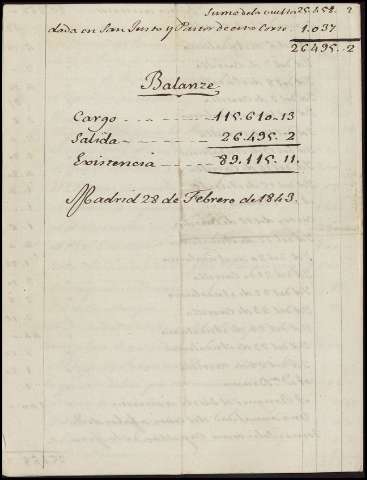 Suma de la vuelta 25.458. 2
dada en San Justo y Pastor de esta Corte. 1.037
26.495..2
Balanze
Cargo 115.610..13
Salida 26.495.2
Existencia 89.115.11.
Madrid 28 de Febrero de 1843.